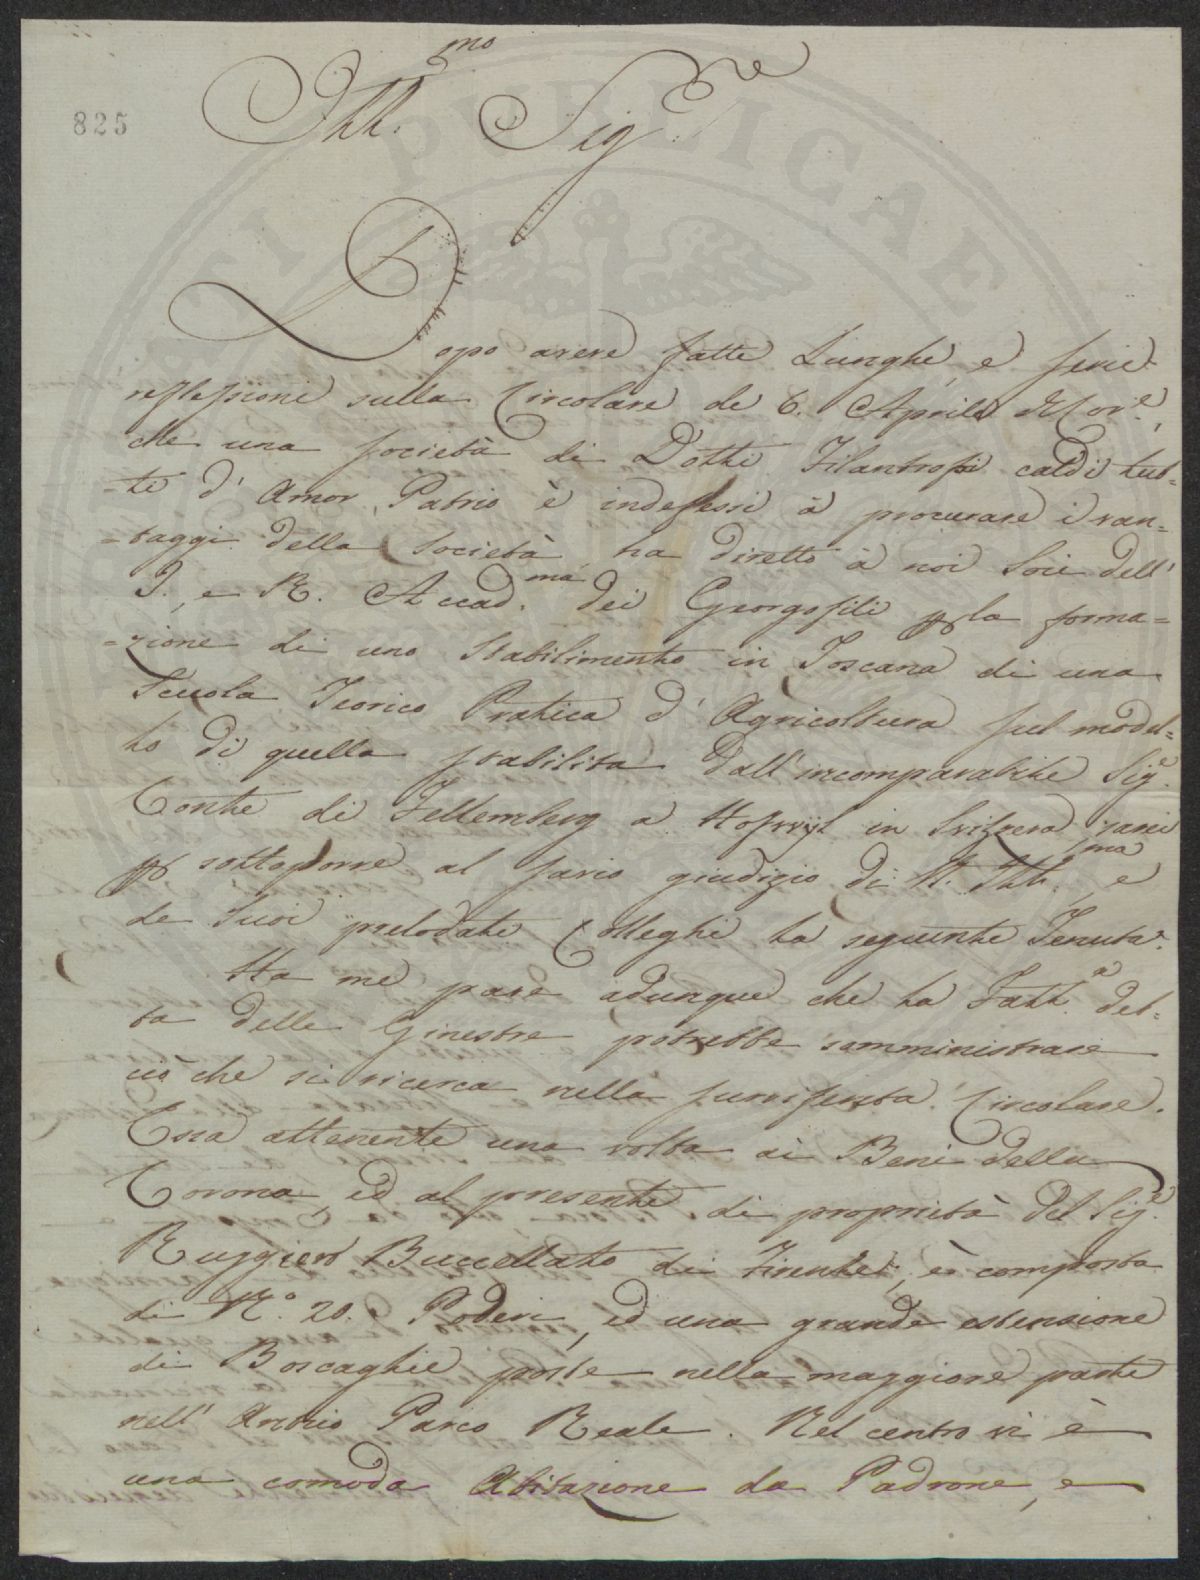 825
Ill.mo Sig.re
Dopo avere fatte Lunghe, e serie
reflessioni sulla Circolare de 6. Aprile
che una società di Dotti Filantropi caldi tut-
-ti d' Amor Patrio è indefessi à procurare i van-
-taggi della società ha diretto à noi Soci dell'
I. e R. Accad.ma dei Georgofili p la forma-
-zione di uno Stabilimento in Toscana di una
Scuola Teorico Pratica d' Agricoltura sul model-
lo di quella stabilita dall'incomparabile Sig.e
Conte di Fellemberg a Hofwyl in Svizzera
p sottoporre al savio giudizio di V. Ill.ma, e
de suoi prelodati Colleghi la seguente Tenuta.
A me pare adunque che la Fatt.a det-
ta delle Ginestre potrebbe somministrare
ciò che si ricerca nella surriferita Circolare.
Essa attenente una volta ai Beni della
Corona, ed al presente di proprietà del Sig.e
Ruggiero Buccellato di Firenze, è composta
di N.o 20. Poderi, ed una grande estensione
di Boscaglie poste nella maggiore parte
nell' Antico Parco Reale. Nel centro vi è
una comoda Abitazione da Padrone, e